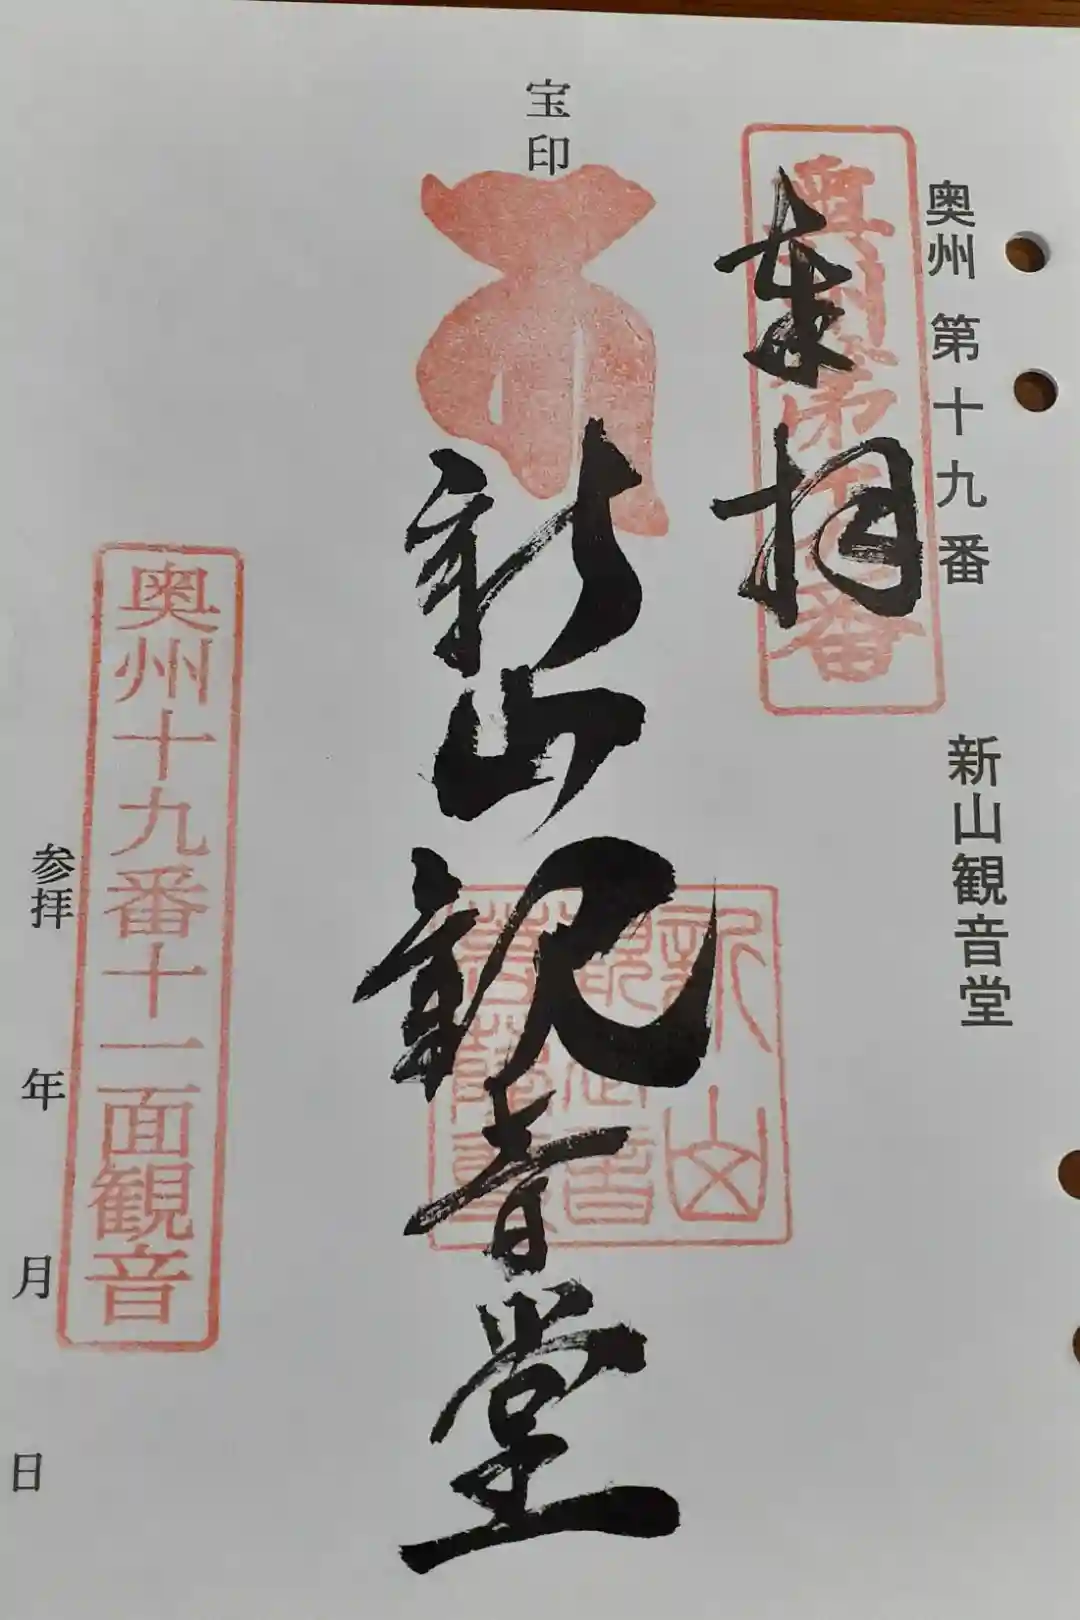 奥州 第十九番 新山観音堂
奥州第十九番
奉拝
宝印
新山観音堂
奥州十九番十一面観音
参拝 年 月 日